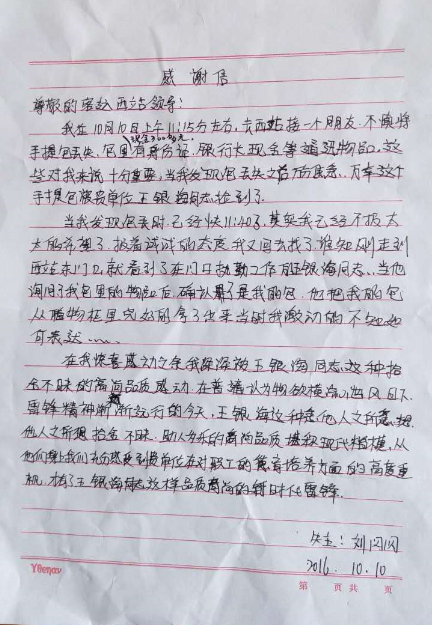 感谢信
尊敬的客运西站领导:
我在10月10日上午11:15分左右,去西站接一个朋友.不慎将
手提包丢失.包里有身份证.银行卡现金等通讯物品,这
些对我来说十分重要,当我发现包丢失之后万分焦急.万幸这个
手提包被贵单位王银海同志捡到了.
当我发现包丢时.已经快11:40了,其实我已经不抱太
大的希望了.抱着试试的态度我又回去找了谁知刚走到
西站东门口,就看到了在门口执勤工作的王银海同志.当他
询问了我包里的物品后.确认是我的包.他把我的包
从 物柜里完好的拿了出来当时我激动的不知如
何表达……
在我惊喜感动之余我深深被王银海同志这种拾
金不昧的高尚品质感动.在普遍认为物欲横流,世风日下
雷锋精神渐渐远行的今天,王银海这种急他人之所急.想
他人之所想 拾金不昧.助人为乐的高尚品质 堪称现代楷模.从
他们身上我们充分感受到贵单位在对职工的教育培养方面的高度重
视.有了王银海 这样品质高尚的新时代雷锋.
失主:刘闪闪
2016.10.10
第 页共 页